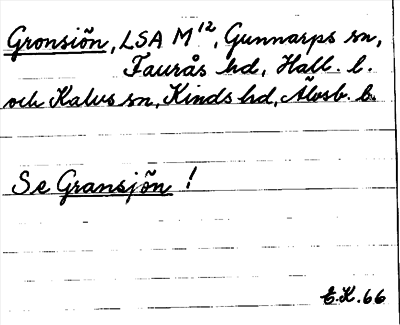 Gronsiön, LSA M¹², Gunnarps sn,
Faurås hd, Hall. l.
och Kalvs sn, Kinds hd, Älvsb. l.
Se Gransjön !
E.K. 66